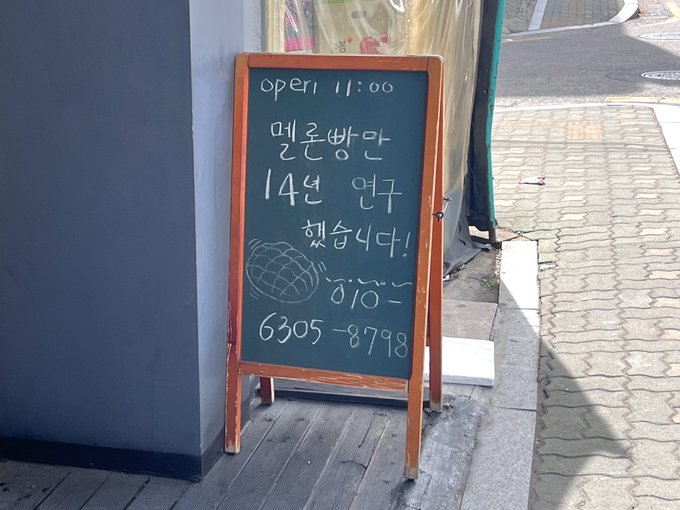 open 11:00
멜론빵만
14년 연구
했습니다!
010-
6305-8798